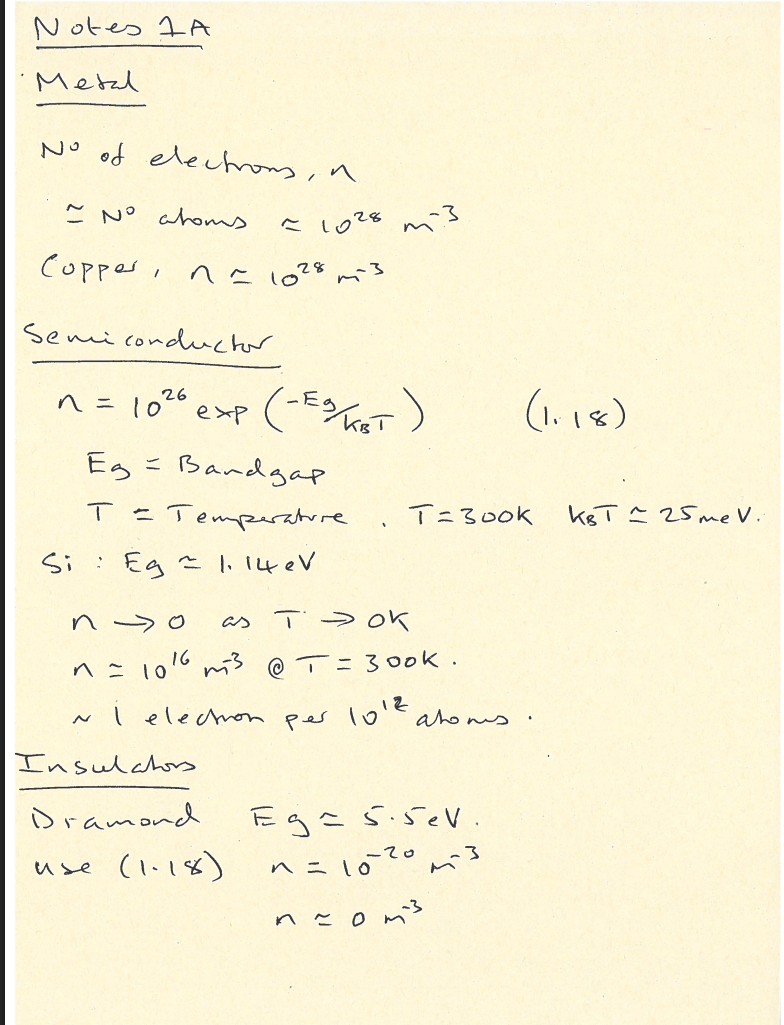 Notes 1A
Metal
Nº of electrons, n
≃ Nº atoms ≃ 10²⁸ m⁻³
Copper, n ≃ 10²⁸ m⁻³
Semiconductor
n = 10²⁶ exp (-Eg/kBT) (1.18)
Eg = Bandgap
T = Temperature . T=300K kBT ≃ 25meV.
Si : Eg ≃ 1.14eV
n → 0 as T → 0K
n ≃ 10¹⁶ m⁻³ @ T = 300K.
~ 1 electron per 10¹² atoms.
Insulators
Diamond Eg ≃ 5.5eV.
use (1.18) n = 10⁻²⁰ m⁻³
n ≃ 0 m⁻³